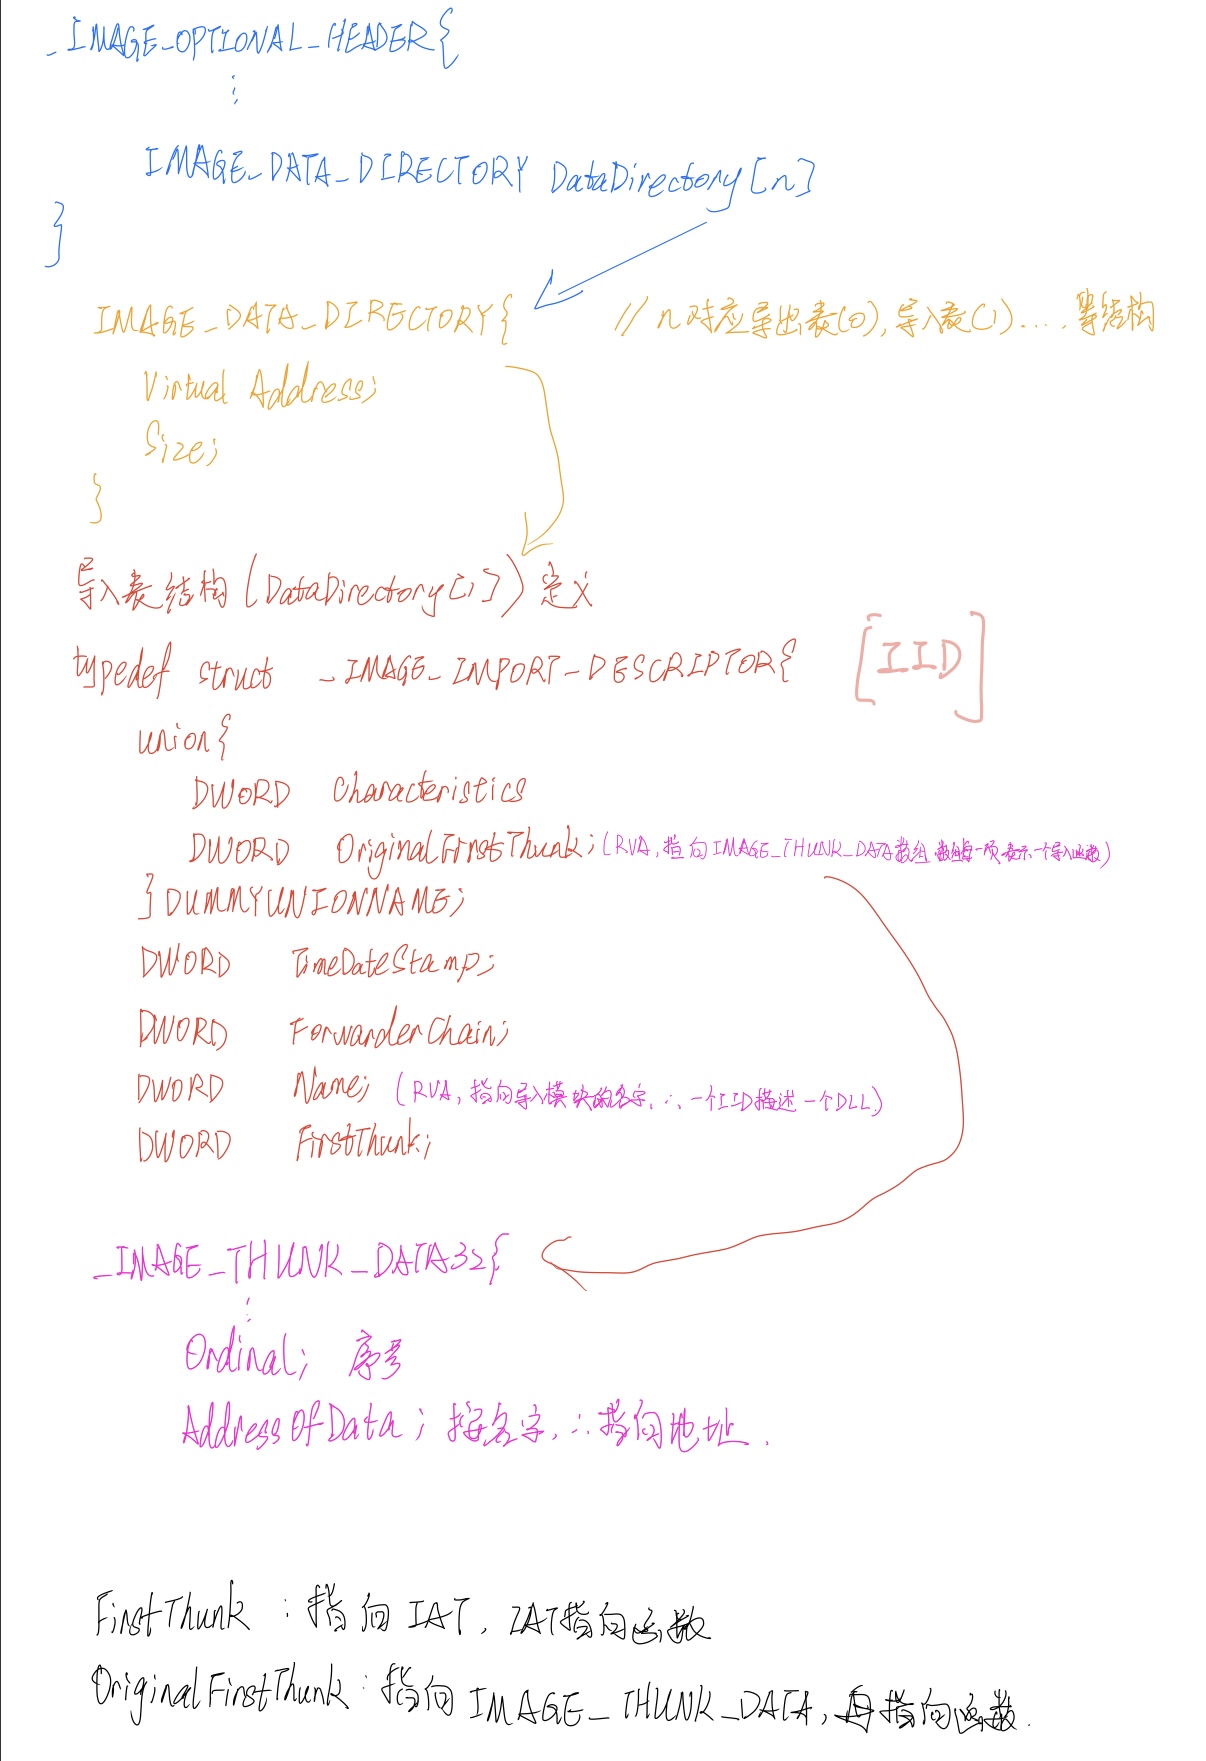 _IMAGE_OPTIONAL_HEADER{
⋮
IMAGE_DATA_DIRECTORY DataDirectory[n]
}
IMAGE_DATA_DIRECTORY{ //n对应导出表(0),导入表(1)....,等结构
Virtual Address;
Size;
}
导入表结构(DataDirectory[1])定义
typedef struct _IMAGE_IMPORT_DESCRIPTOR{ [IID]
union{
DWORD Characteristics
DWORD OriginalFirstThunk;(RVA,指向IMAGE_THUNK_DATA数组,数组每一项表示一个导入函数)
}DUMMYUNIONNAME;
DWORD TimeDateStamp;
DWORD ForwarderChain;
DWORD Name; (RVA,指向导入模块的名字,∴一个IID描述一个DLL)
DWORD FirstThunk;
_IMAGE_THUNK_DATA32{
⋮
Ordinal; 序号
AddressOfData;按名字,∴指向地址.
FirstThunk:指向IAT,IAT指向函数
OriginalFirstThunk:指向IMAGE_THUNK_DATA,再指向函数.